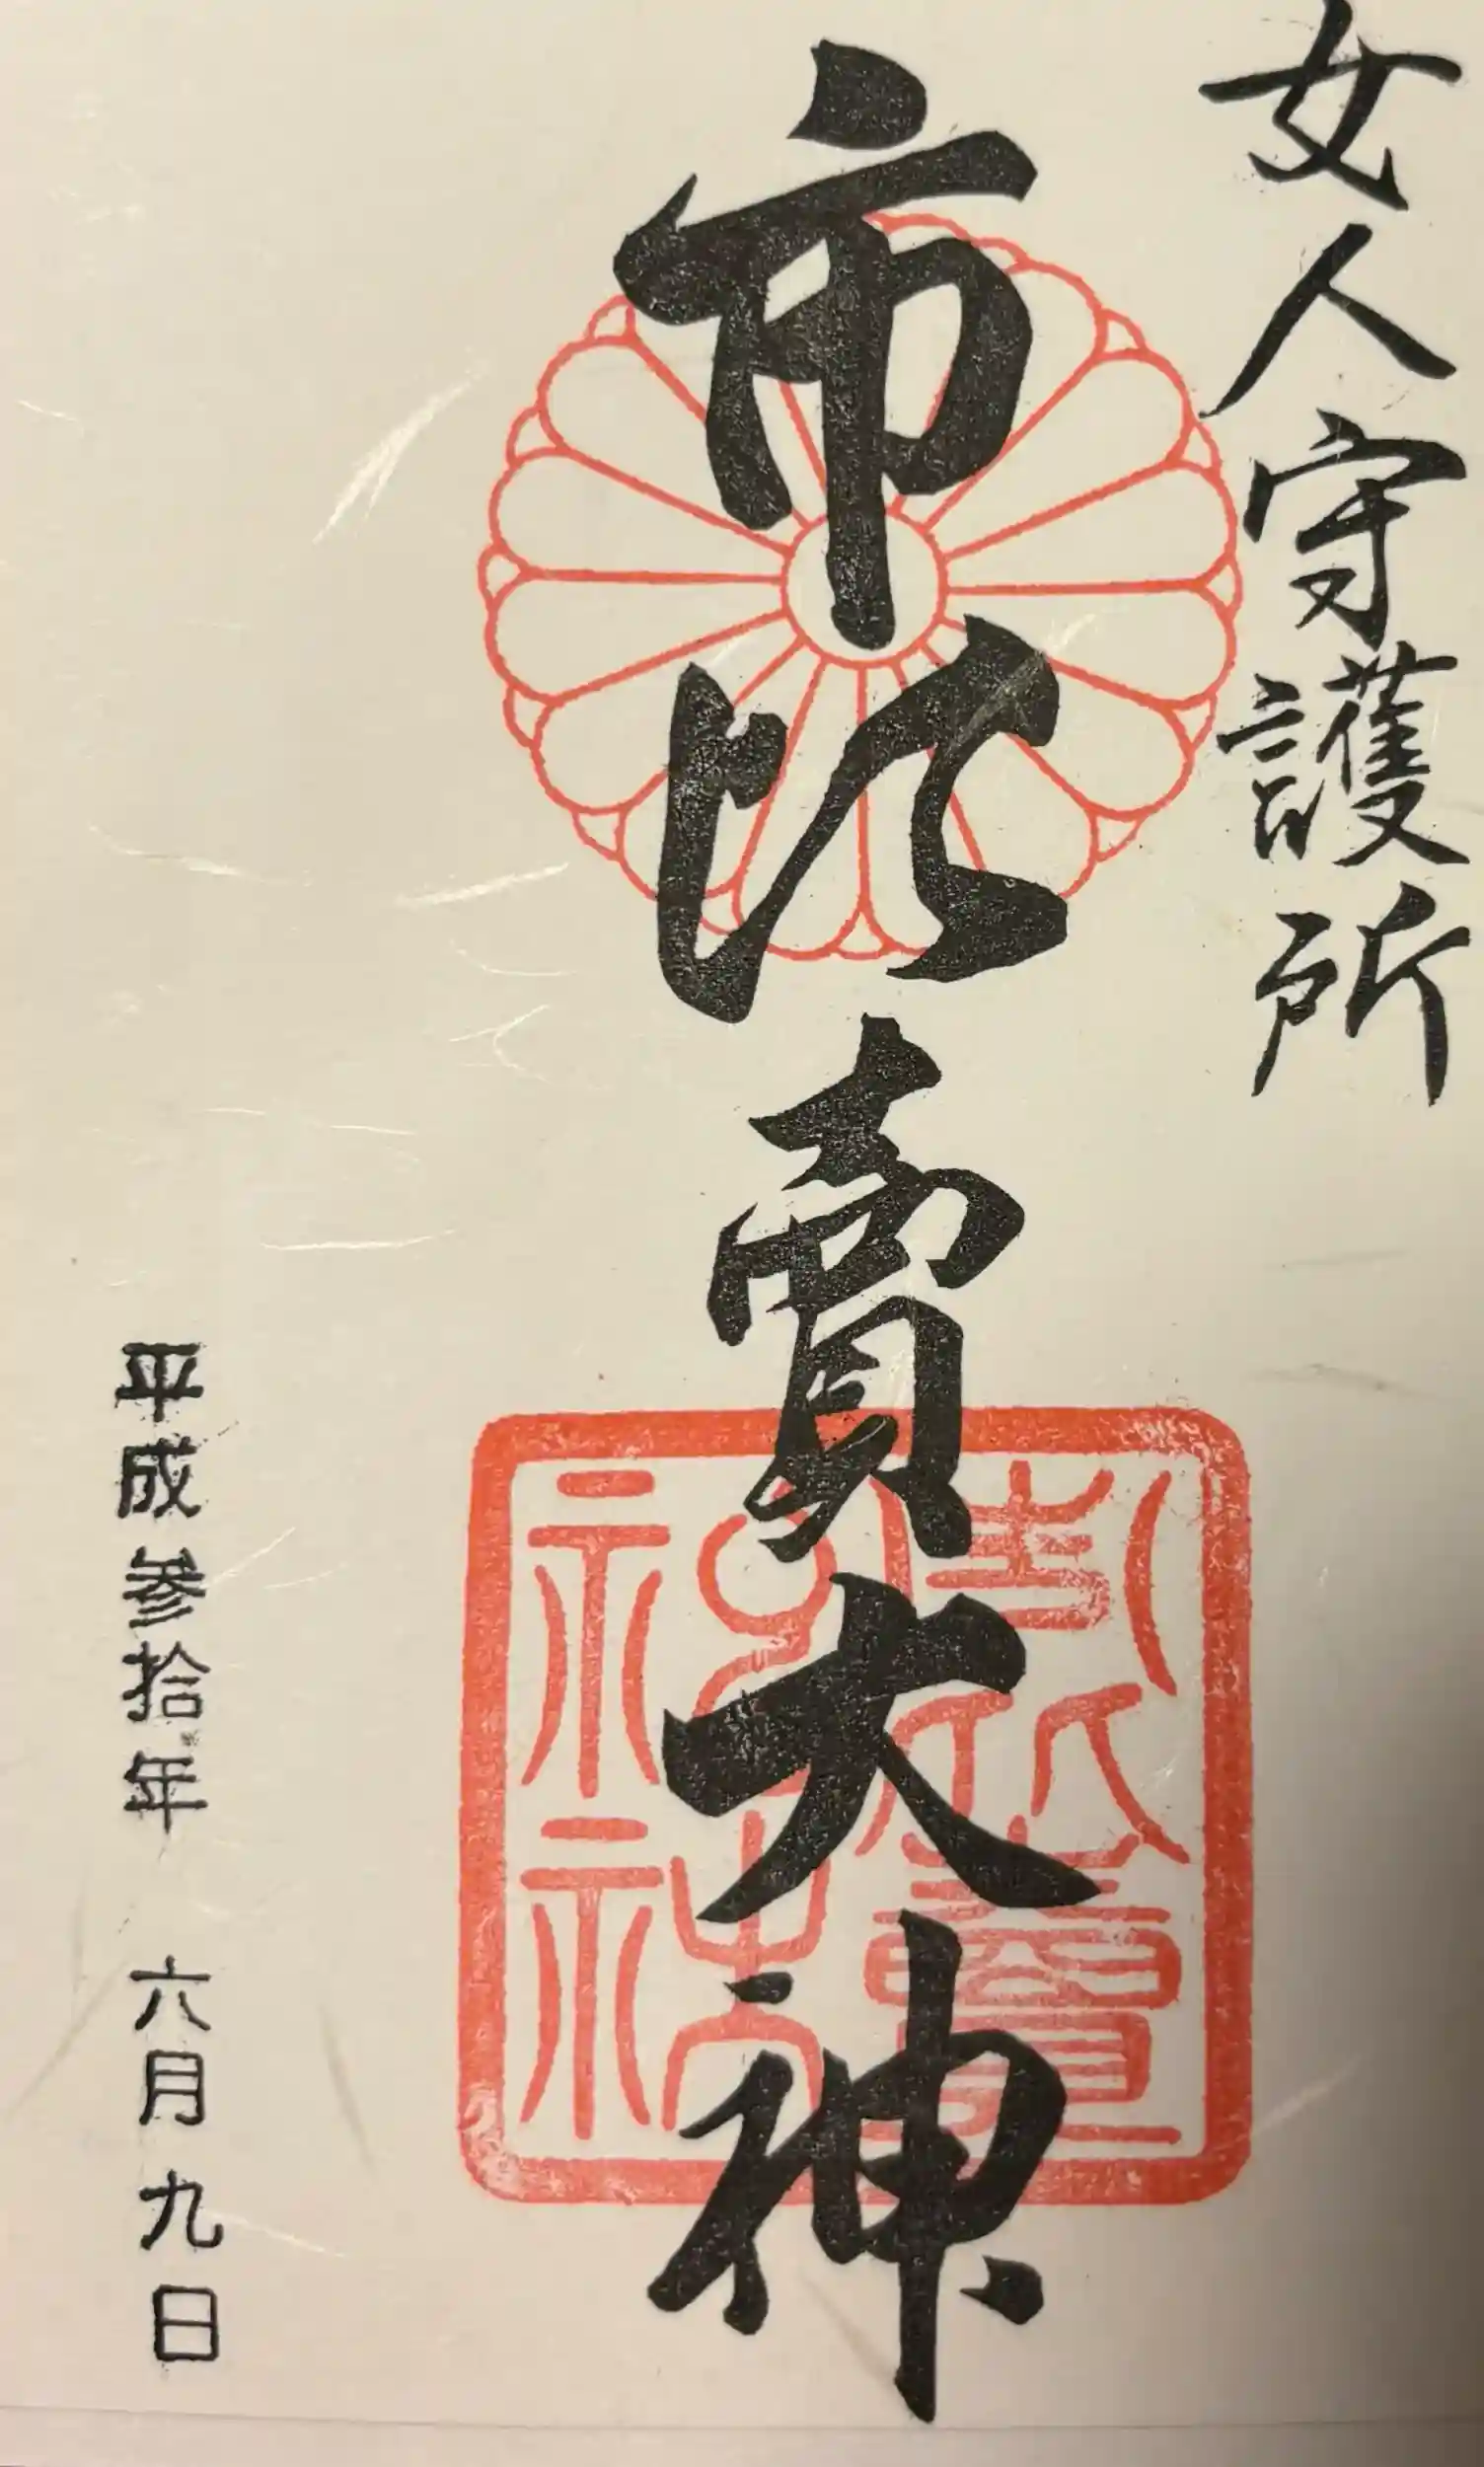 女人守護所
市比賣大神
平成参拾年 六月九日